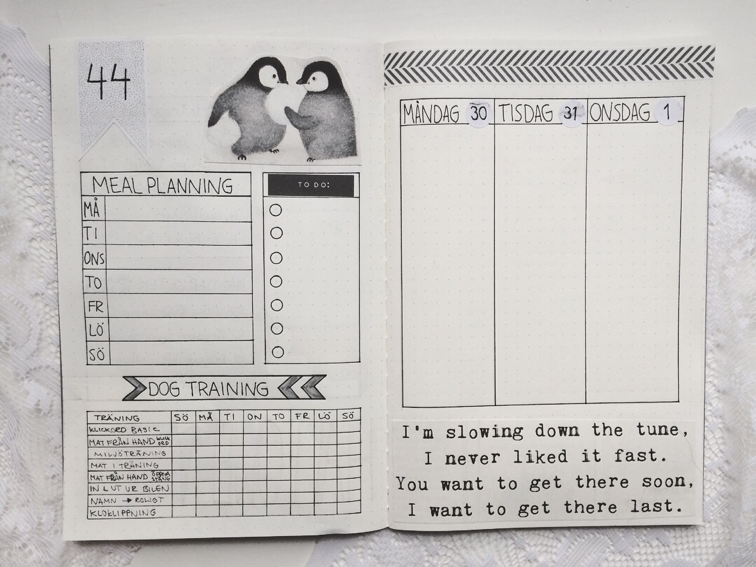 44
MEAL PLANNING
MÅ
TI
ONS
TO
FR
LÖ
SÖ
TO DO:
DOG TRAINING
TRÄNING SÖ MÅ TI ON TO FR LÖ SÖ
KLICKORD BASIC
MAT FRÅN HAND
MILJÖTRÄNING
MAT I TRÄNING
MAT FRÅN HAND
IN & UT UR BILEN
NAMN → ROLIGT
KLOKLIPPNING
MÅNDAG 30 TISDAG 31 ONSDAG 1
I'm slowing down the tune,
I never liked it fast.
You want to get there soon,
I want to get there last.